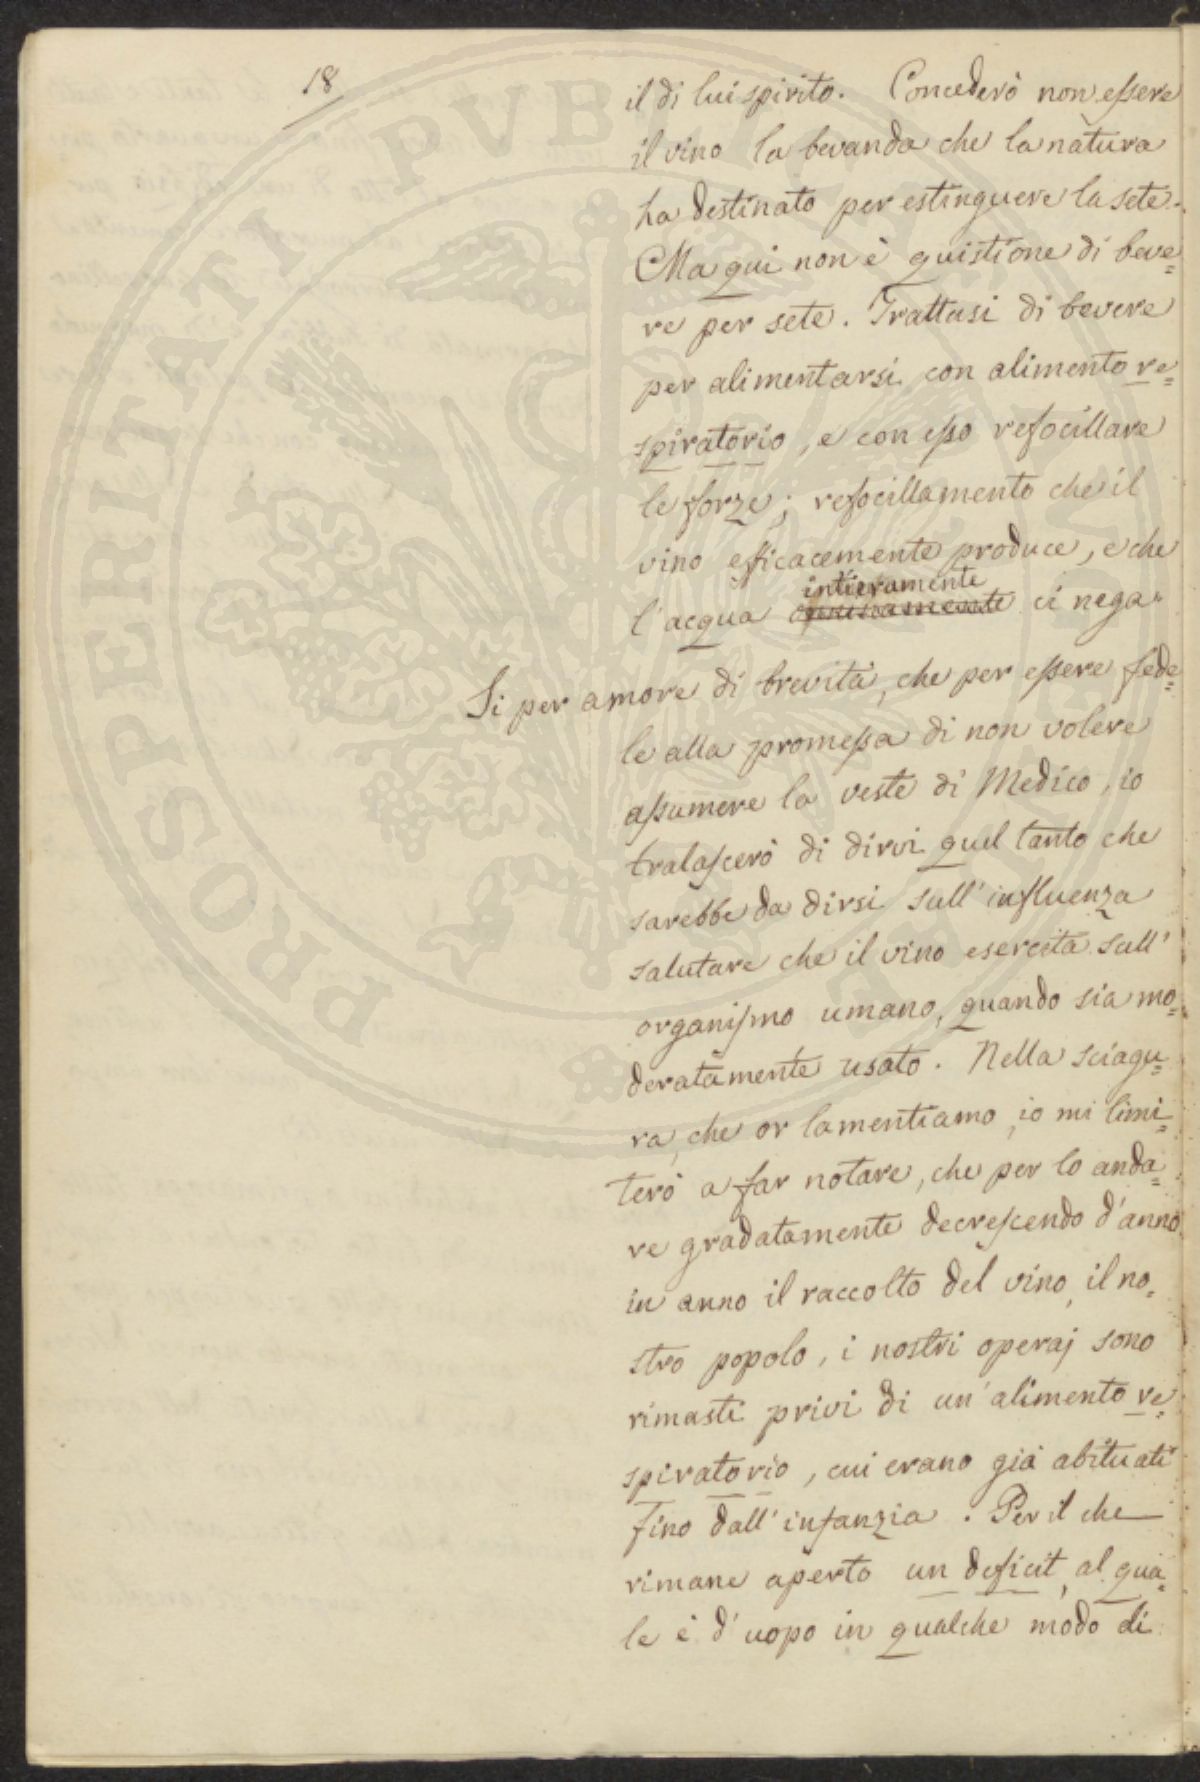 18
il di lui spirito. Concederò non essere
il vino la bevanda che la natura
ha destinato per estinguere la sete.
Ma qui non è quistione di beve=
re per sete. Trattasi di bevere
per alimentarsi con alimento re=
spiratorio, e con esso refocillare
le forze; refocillamento che il
vino efficacemente produce, e che
intieramente
l'acqua ci nega.
Si per amore di brevità, che per essere fede=
le alla promessa di non volere
assumere la veste di Medico, io
tralascerò di dirvi quel tanto che
sarebbe da dirsi sull'influenza
salutare che il vino esercita sull'
organismo umano, quando sia mo=
deratamente usato. Nella sciagu=
ra, che or lamentiamo, io mi limi=
terò a far notare, che per lo anda=
re gradatamente decrescendo d'anno
in anno il raccolto del vino, il no=
stro popolo, i nostri operaj sono
rimasti privi di un'alimento re=
spiratorio, cui erano già abituati
fino dall'infanzia. Per il che
rimane aperto un deficit, al qua=
le è d'uopo in qualche modo di
PROSPERITATI PVBLICAE